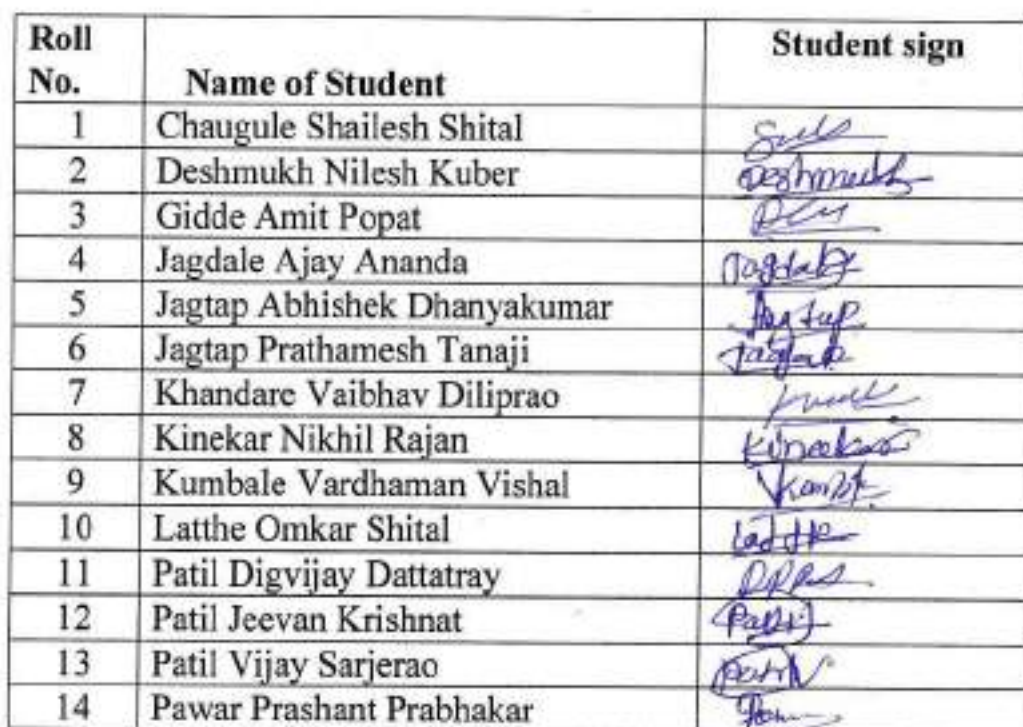 Roll No. Name of Student Student sign
1 Chaugule Shailesh Shital
2 Deshmukh Nilesh Kuber Deshmukh
3 Gidde Amit Popat
4 Jagdale Ajay Ananda Jagdale
5 Jagtap Abhishek Dhanyakumar Jagtap
6 Jagtap Prathamesh Tanaji Jagtap
7 Khandare Vaibhav Diliprao
8 Kinekar Nikhil Rajan Kinekar
9 Kumbale Vardhaman Vishal
10 Latthe Omkar Shital Latthe
11 Patil Digvijay Dattatray
12 Patil Jeevan Krishnat
13 Patil Vijay Sarjerao
14 Pawar Prashant Prabhakar